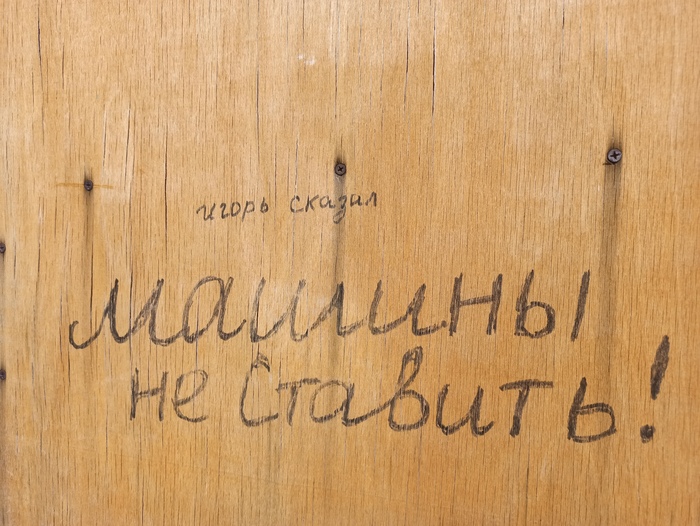 игорь сказал
машины
не ставить!